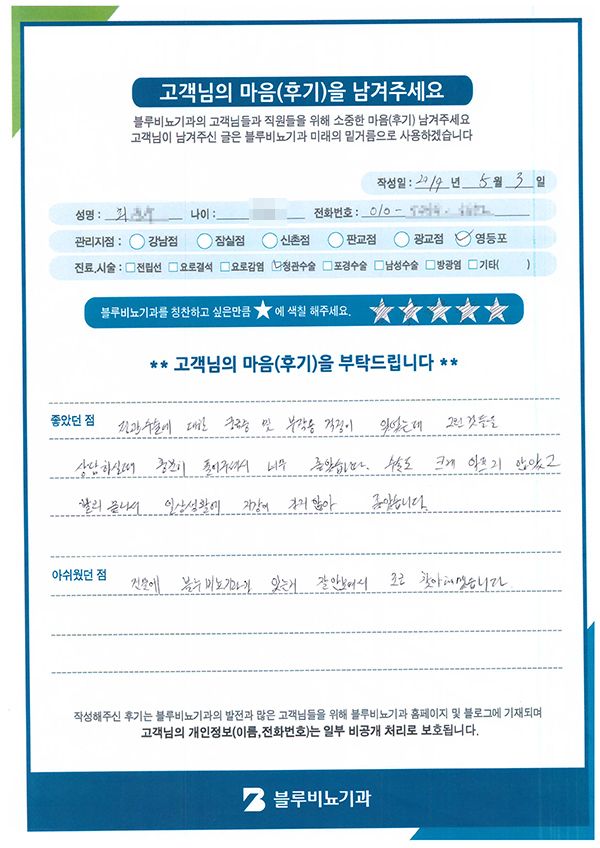 고객님의 마음(후기)을 남겨주세요
블루비뇨기과의 고객님들과 직원들을 위해 소중한 마음(후기) 남겨주세요
고객님이 남겨주신 글은 블루비뇨기과 미래의 밑거름으로 사용하겠습니다
작성일 : 2019 년 5 월 3 일
성명 : 나이 : 전화번호 : 010 -
관리지점 : 강남점 잠실점 신촌점 판교점 광교점 영등포
진료,시술 : 전립선 요로결석 요로감염 정관수술 포경수술 남성수술 방광염 기타( )
블루비뇨기과를 칭찬하고 싶은만큼 ★ 에 색칠 해주세요. ★★★★★
** 고객님의 마음(후기)을 부탁드립니다 **
좋았던 점 정관수술에 대한 궁금증 및 부작용 걱정이 있었는데 그런 것들을
상담하실때 충분히 풀어주셔서 너무 좋았습니다. 수술도 크게 아프지 않았고
빨리 끝나서 일상생활에 지장이 크지 않아 좋았습니다.
아쉬웠던 점 건물에 블루비뇨기과가 있는게 잘 안보여서 조금 찾아헤맸습니다.
작성해주신 후기는 블루비뇨기과의 발전과 많은 고객님들을 위해 블루비뇨기과 홈페이지 및 블로그에 기재되며
고객님의 개인정보(이름,전화번호)는 일부 비공개 처리로 보호됩니다.
블루비뇨기과